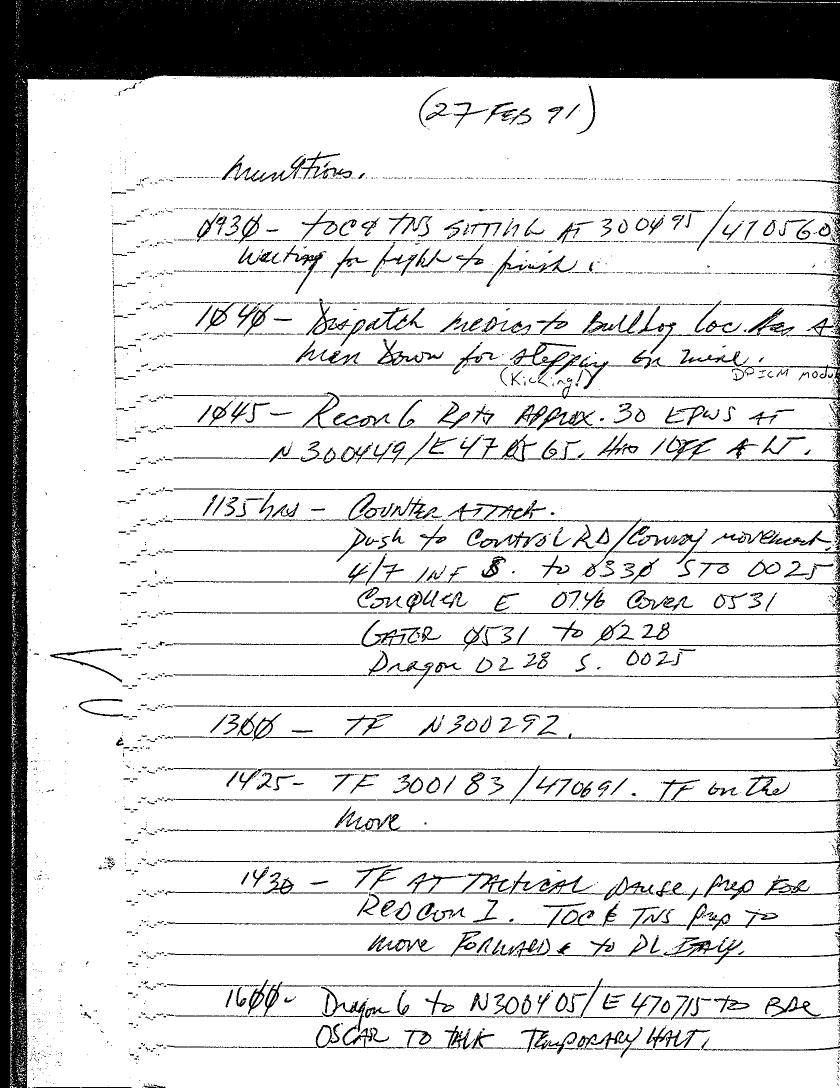 (27 FEB 91)
munitions.
0930 - TOC & TNS SITTING AT 300495/470560
Waiting for fight to finish.
1040 - Dispatch medics to Bulldog loc. Has A
man Down for stepping on mine.
(Kicking!) DPICM modul
1045 - Recon 6 Rpts APPROX. 30 EPWS AT
N 300449/E 470565. Has 1 OFF A LT.
1135 hrs - COUNTER ATTACK.
push to CONTROL RD/Convoy movement.
4/7 INF S. to 0330 STO 0025
CONQUER E 0746 COVER 0531
GATOR 0531 to 0228
Dragon 0228 S. 0025
1300 - TF N300292.
1425 - TF 300183/470691. TF on the
move.
1430 - TF AT TACTICAL PAUSE, Prep FOR
REDCON I. TOC & TNS Prep To
move FORWARD to PL
1600 - Dragon 6 to N300405/E 470715 to BDE
OSCAR TO TALK TEMPORARY HALT.